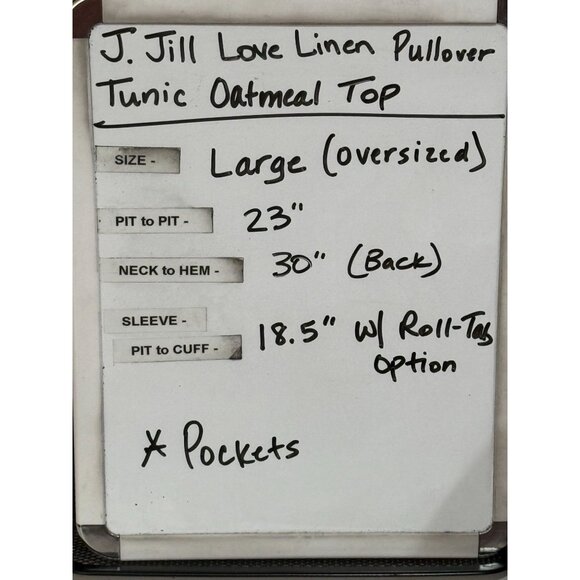 J. Jill Love Linen Pullover
Tunic Oatmeal Top
SIZE - Large (oversized)
PIT to PIT - 23"
NECK to HEM - 30" (Back)
SLEEVE -
PIT to CUFF - 18.5" w/ Roll-Tab
option
* Pockets